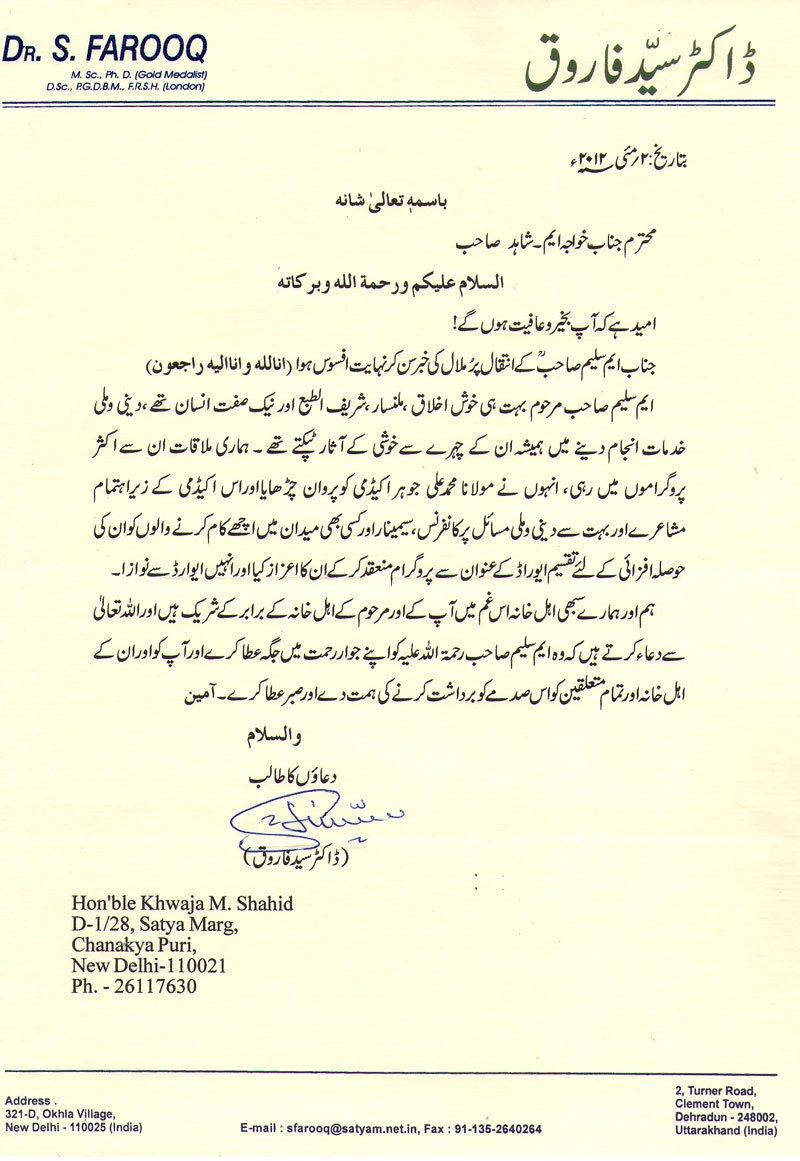 DR. S. FAROOQ
M. Sc., Ph. D. (Gold Medalist)
D.Sc., P.G.D.B.M., F.R.S.H. (London)
ڈاکٹر سیّد فاروق
بتاریخ: ۲؍مئی ۲۰۱۲ء
باسمہٖ تعالیٰ شانہ
محترم جناب خواجہ ایم۔ شاہد صاحب
السلام علیکم ورحمة الله وبرکاته
امید ہے کہ آپ بخیر و عافیت ہوں گے!
جناب ایم سلیم صاحبؒ کے انتقال پُر ملال کی خبر سن کر نہایت افسوس ہوا (اناللہ و اناالیہ راجعون)
ایم سلیم صاحب مرحوم بہت ہی خوش اخلاق ، ملنسار ، شریف الطبع اور نیک صفت انسان تھے ، دینی و ملی
خدمات انجام دینے میں ہمیشہ ان کے چہرے سے خوشی کے آثار ٹپکتے تھے ۔ ہماری ملاقات ان سے اکثر
پروگراموں میں رہی، انہوں نے مولانا محمد علی جوہر اکیڈمی کو پروان چڑھایا اور اس اکیڈمی کے زیر اہتمام
مشاعرے اور بہت سے دینی و ملی مسائل پر کانفرنس، سیمینار اور کسی بھی میدان میں اچھے کام کرنے والوں کو ان کی
حوصلہ افزائی کے لئے تقسیم ایوراڈ کے عنوان سے پروگرام منعقد کر کے ان کا اعزاز کیا اور انہیں ایوارڈ سے نوازا۔
ہم اور ہمارے سبھی اہل خانہ اس غم میں آپ کے اور مرحوم کے اہل خانہ کے برابر کے شریک ہیں اور اللہ تعالیٰ
سے دعاء کرتے ہیں کہ وہ ایم سلیم صاحب رحمۃ اللہ علیہ کو اپنے جوار رحمت میں جگہ عطا کرے اور آپ کو اور ان کے
اہل خانہ اور تمام متعلقین کو اس صدمے کو برداشت کرنے کی ہمت دے اور صبر عطا کرے۔ آمین
والسلام
دعاؤں کا طالب
(ڈاکٹر سید فاروق)
Hon'ble Khwaja M. Shahid
D-1/28, Satya Marg,
Chanakya Puri,
New Delhi-110021
Ph. - 26117630
Address .
321-D, Okhla Village,
New Delhi - 110025 (India)
E-mail : sfarooq@satyam.net.in, Fax : 91-135-2640264
2, Turner Road,
Clement Town,
Dehradun - 248002,
Uttarakhand (India)